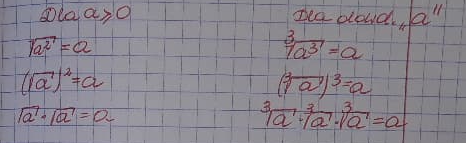 Dla a ≥ 0
√a² = a
(√a)² = a
√a · √a = a
Dla dowol. „a"
∛a³ = a
(∛a)³ = a
∛a · ∛a · ∛a = a